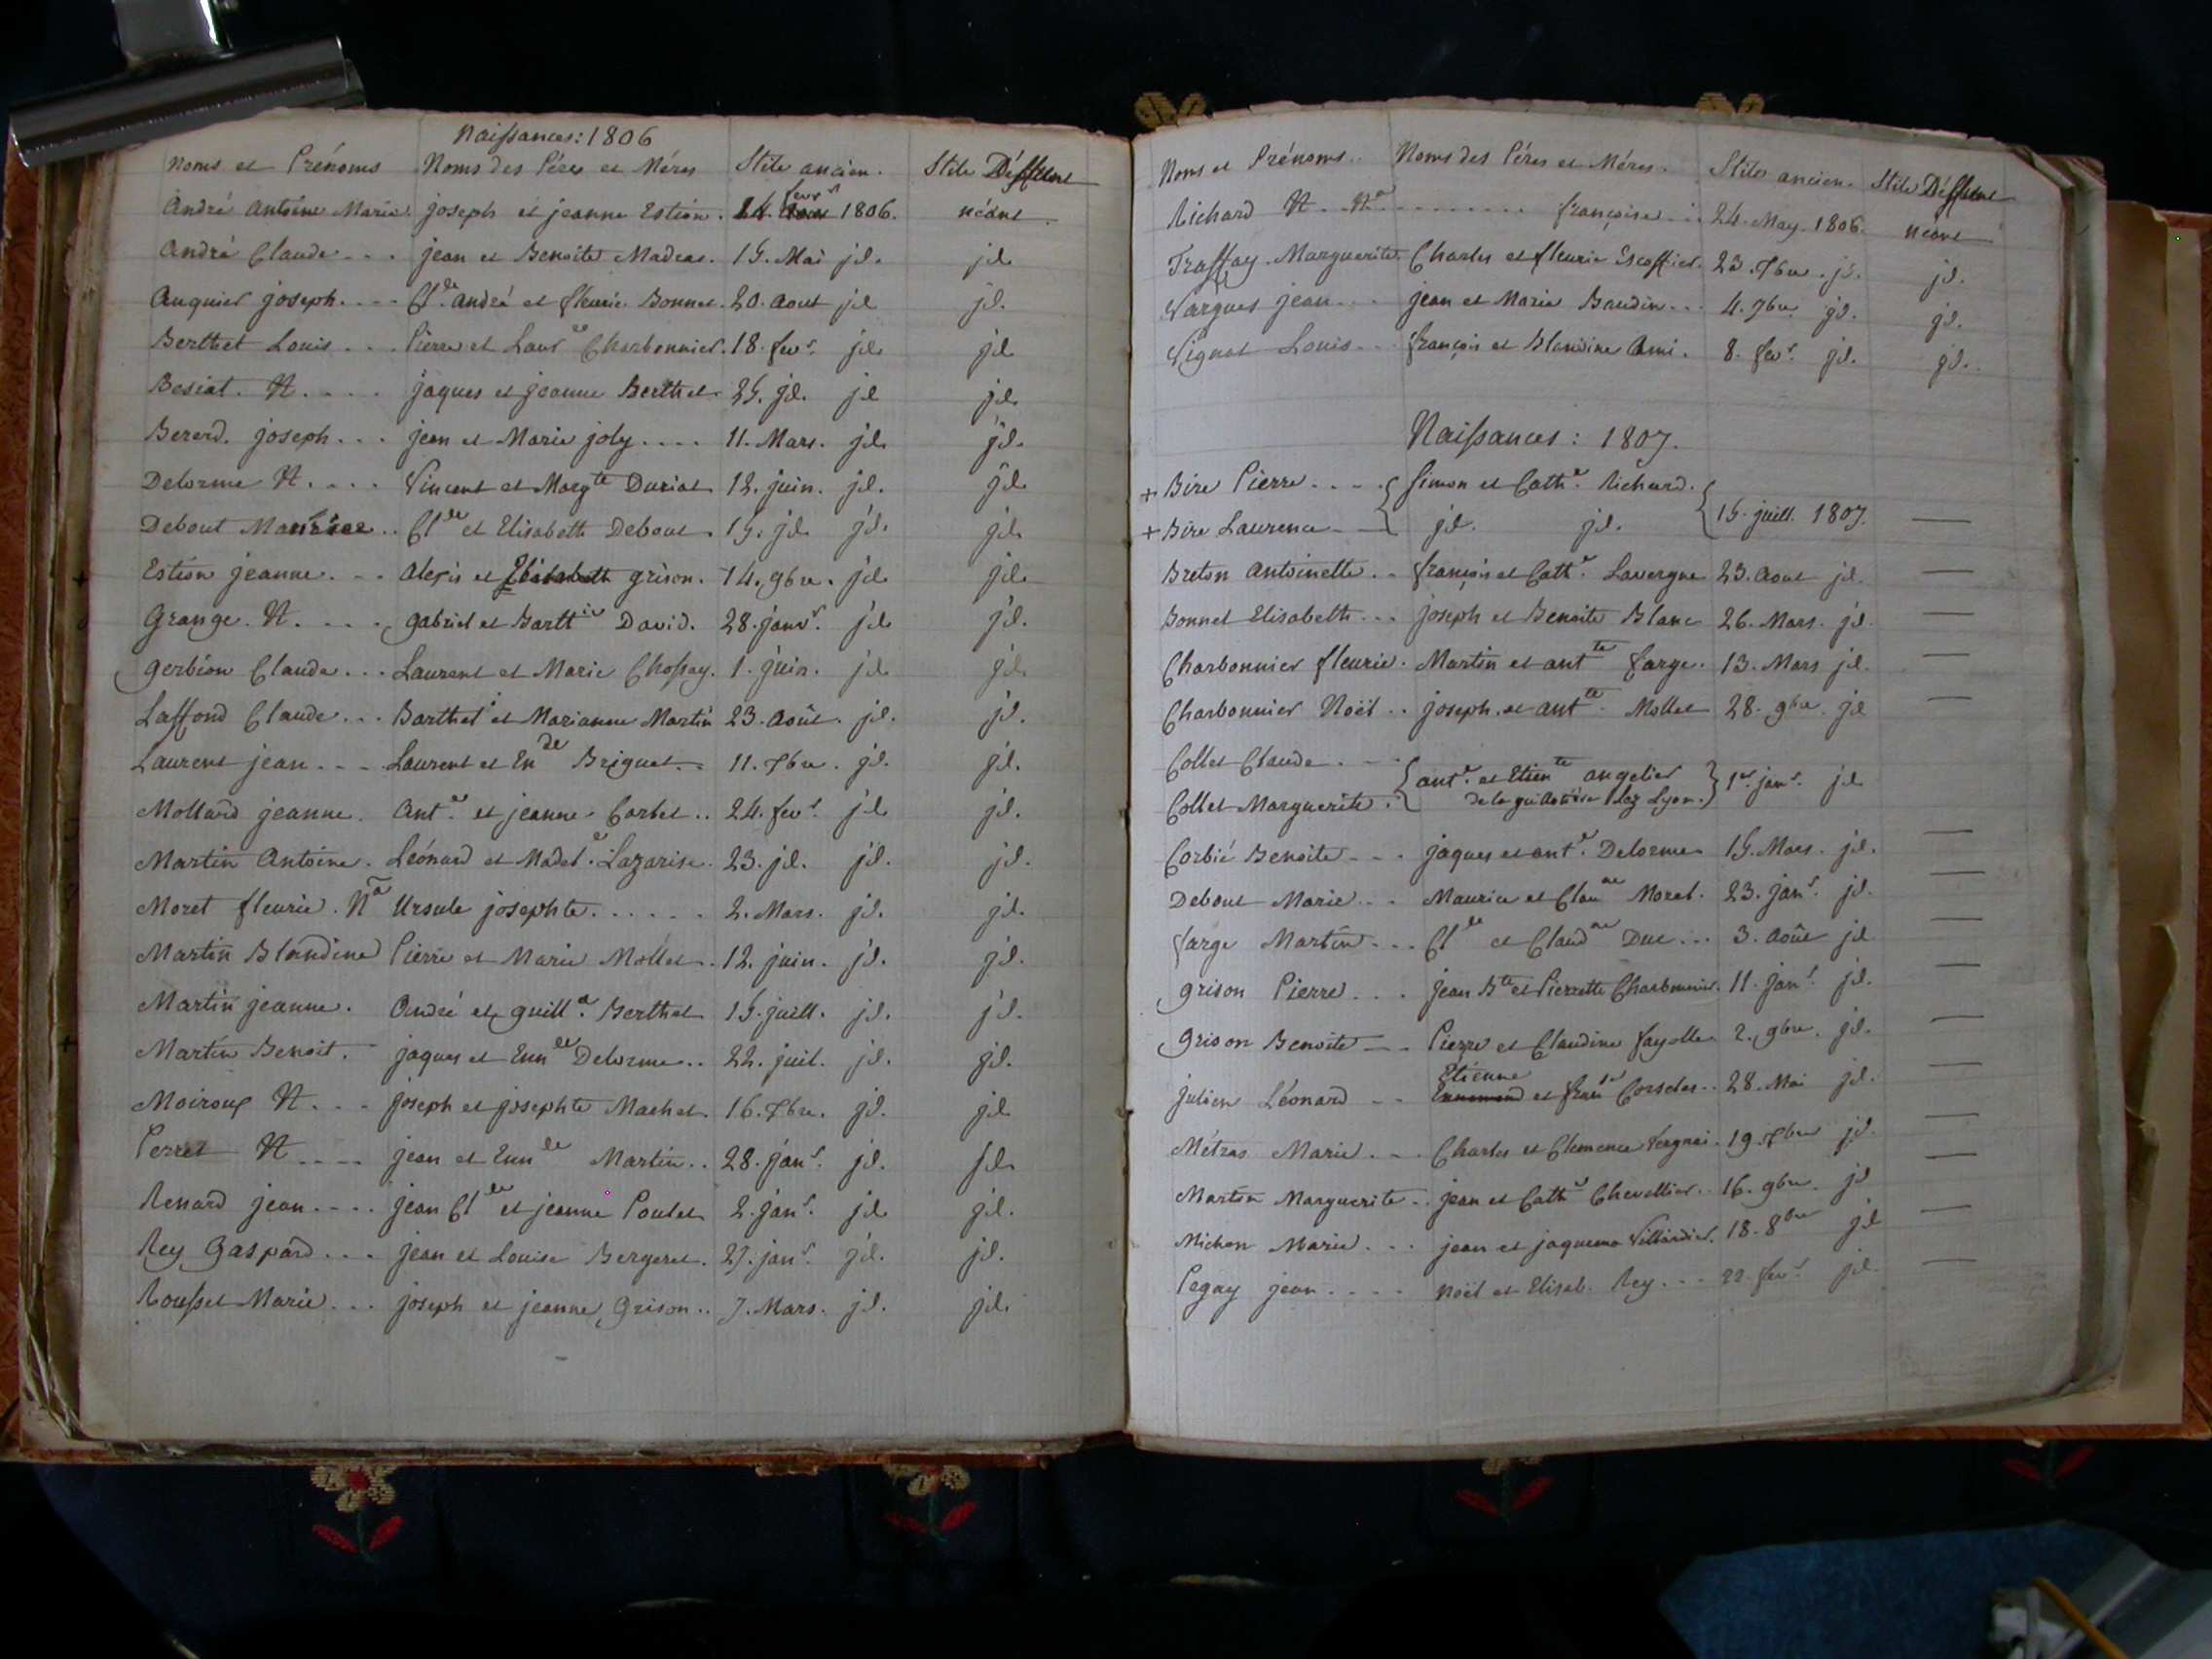 Naissances: 1806
Noms et Prénoms Noms des Péres et Méres Stile ancien. Stile
André Antoine Marie. joseph et jeanne Estion. 14. fevr 1806. néant
André Claude jean et Benoite Madeas. 15. Mai jd. jd.
Auquier joseph. Cl.de André et fleurie Bonnet. 20. Aout jd jd.
Berthet Louis Pierre et Laur.ce Charbonnier. 18. fevr. jd. jd
Besiat. N. jaques et jeanne Berthet. 25. jd. jd jd.
Bererd. joseph. jean et Marie joly. 11. Mars. jd. jd.
Delorme N. Vincent et Marg.te Duriat 12. juin. jd. jd.
Debout Maurice Cl.de et Elisabeth Debout. 15. jd. jd. jd.
Estion jeanne. Alexis et Elisabeth grison. 14. 9bre. jd. jd.
Grange. N. gabriel et Barth.ie David. 28. janvr. jd. jd.
gerbion Claude Laurent et Marie Chossay. 1. juin. jd. jd.
Laffond Claude Barthel. et Marianne Martin 23. Août. jd. jd.
Laurent jean Laurent et En.de Briguet. 11. 7bre. jd. jd.
Mollard jeanne. Ant.e et jeanne Corbet 24. fevr. jd. jd.
Martin Antoine. Léonard et Madel.e Lazarise. 23. jd. jd. jd.
Moret fleurie. N.a Ursule josephte. 2. Mars. jd. jd.
Martin Blandine Pierre et Marie Mollet. 12. juin. jd. jd.
Martin jeanne. André et guill.e Berthet 15. juill. jd. jd.
Martin Benoit. jaques et Enn.de Delorme 22. juil. jd. jd.
Moiroux N. joseph et josephte Machet. 16. 7bre. jd. jd
Perret N jean et Enn.de Martin 28. janr. jd. jd.
Renard jean jean Cl.de et jeanne Poulet 2. janr. jd. jd.
Rey Gaspard jean et Louise Bergeret. 27. janr. jd. jd.
Rousset Marie joseph et jeanne Grison 7. Mars. jd. jd.
Noms et Prénoms. Noms des Péres et Méres. Stile ancien. Stile
Richard N. N.a françoise 24. May. 1806. néant
Traffay. Marguerite Charles et fleurie Escoffier. 23. 7bre. jd. jd.
Vargues jean jean et Marie Baudin 4. 9bre jd. jd.
Vignat Louis françois et Blandine Ami. 8. fevr. jd. jd.
Naissances: 1807.
+ Bire Pierre Simon et Cath.e Richard.
+ Bire Laurence jd. jd. 15. juill. 1807.
Breton Antoinette françois et Cath.e Lavergne 23. Aout jd.
Bonnet Elisabeth joseph et Benoite Blanc 26. Mars. jd.
Charbonnier fleurie. Martin et ant.te farge. 13. Mars jd.
Charbonnier Noël joseph et ant.te Mollet 28. 9bre. jd
Collet Claude. ant.e et Etien.te angelier 1er janr. jd
Collet Marguerite. de la guillotière lez Lyon.
Corbié Benoite jaques et ant.e Delorme 15. Mars. jd.
Debout Marie Maurice et Clau.ne Moret. 23. janr. jd.
farge Martin Cl.de et Claud.ne Duc 3. Août jd
grison Pierre jean B.te et Pierrette Charbonnier. 11. janr. jd.
grison Benoite Pierre et Claudine fayolle 2. 9bre. jd.
Etienne
julien Léonard Ennemond et fran.se Corselas 28. Mai jd.
Métras Marie Charles et Clemence Vergnai. 19. 7bre jd.
Martin Marguerite jean et Cath.e Chevellier 16. 9bre. jd
Michon Marie jean et jaqueme Villardier. 18. 8bre jd
Pegay jean Noël et Elisab. Rey 22. fevr. jd